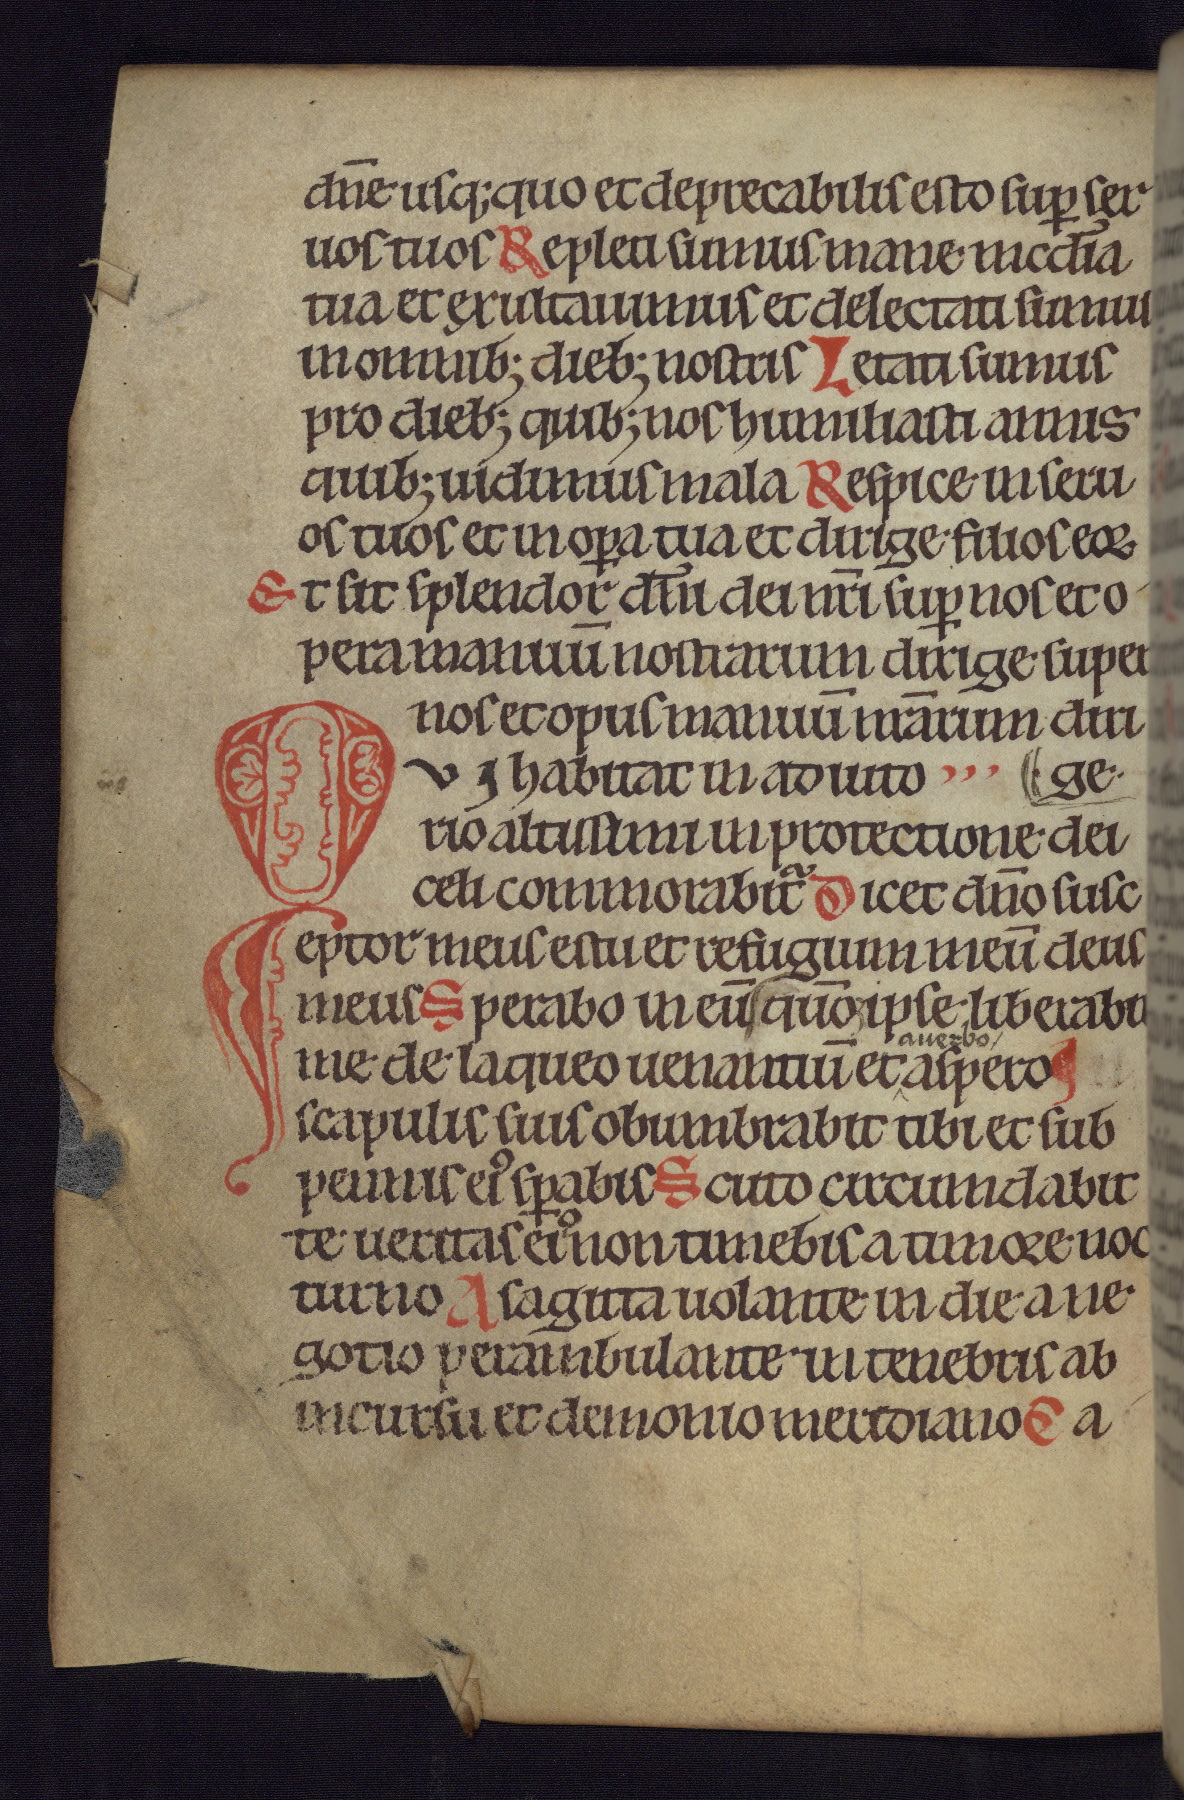 dn̄e usq; quo et deprecabilis esto sup̱ ser
uos tuos Repleti sumus mane mcd̄ia
tua et exultauimus et delectati sumus
in omnib; dieb; nostris Letati sumus
pro dieb; quib; nos humiliasti annis
quib; uidimus mala Respice in seru
os tuos et in op̱a tua et dirige filios eoꝝ
Et sit splendor dn̄i dei nr̄i sup̱ nos et o
pera manuū nostrarum dirige super
nos et opus manuū nr̄arum diri
Qui habitat in adiuto ge
rio altissimi in protectione dei
celi commorabitᵃ Dicet dn̄o susc
eptor meus es tu et refugium meū deus
meus Sperabo in eū qm̄o ipse liberabit
auerbo
me de laqueo uenantiū et aspero
scapulis suis obumbrabit tibi et sub
pennis ei᾽ sp̱abis Scuto circumdabit
te ueritas ei᾽ non timebis a timore noc
turno A sagitta uolante in die a ne
gotio perambulante in tenebris ab
incursu et demonio meridiano Ca